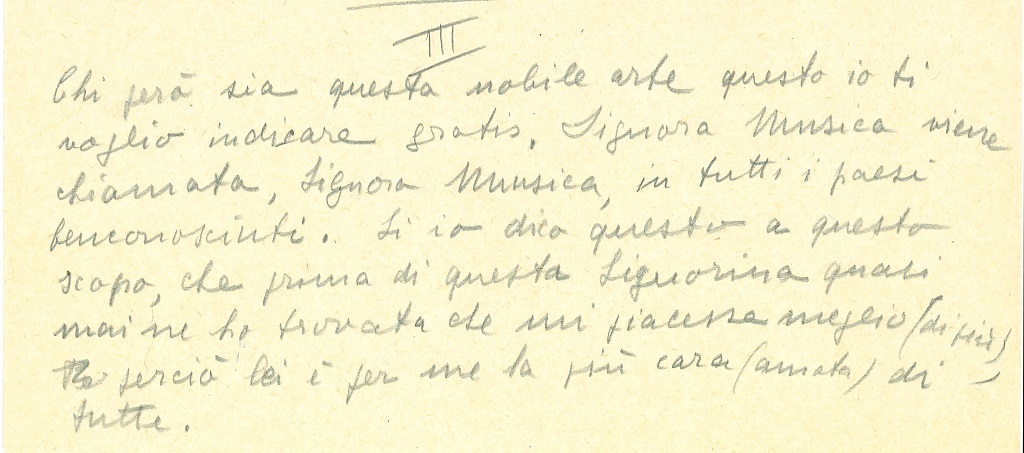 III
Chi però sia questa nobile arte questo io ti
voglio indicare gratis. Signora Musica viene
chiamata, Signora Musica, in tutti i paesi
benconosciuti. Si io dico questo a questo
scopo, che prima di questa Signorina quasi
mai ne ho trovata che mi piacesse meglio (di più)
perciò lei è per me la più cara (amata) di
tutte.